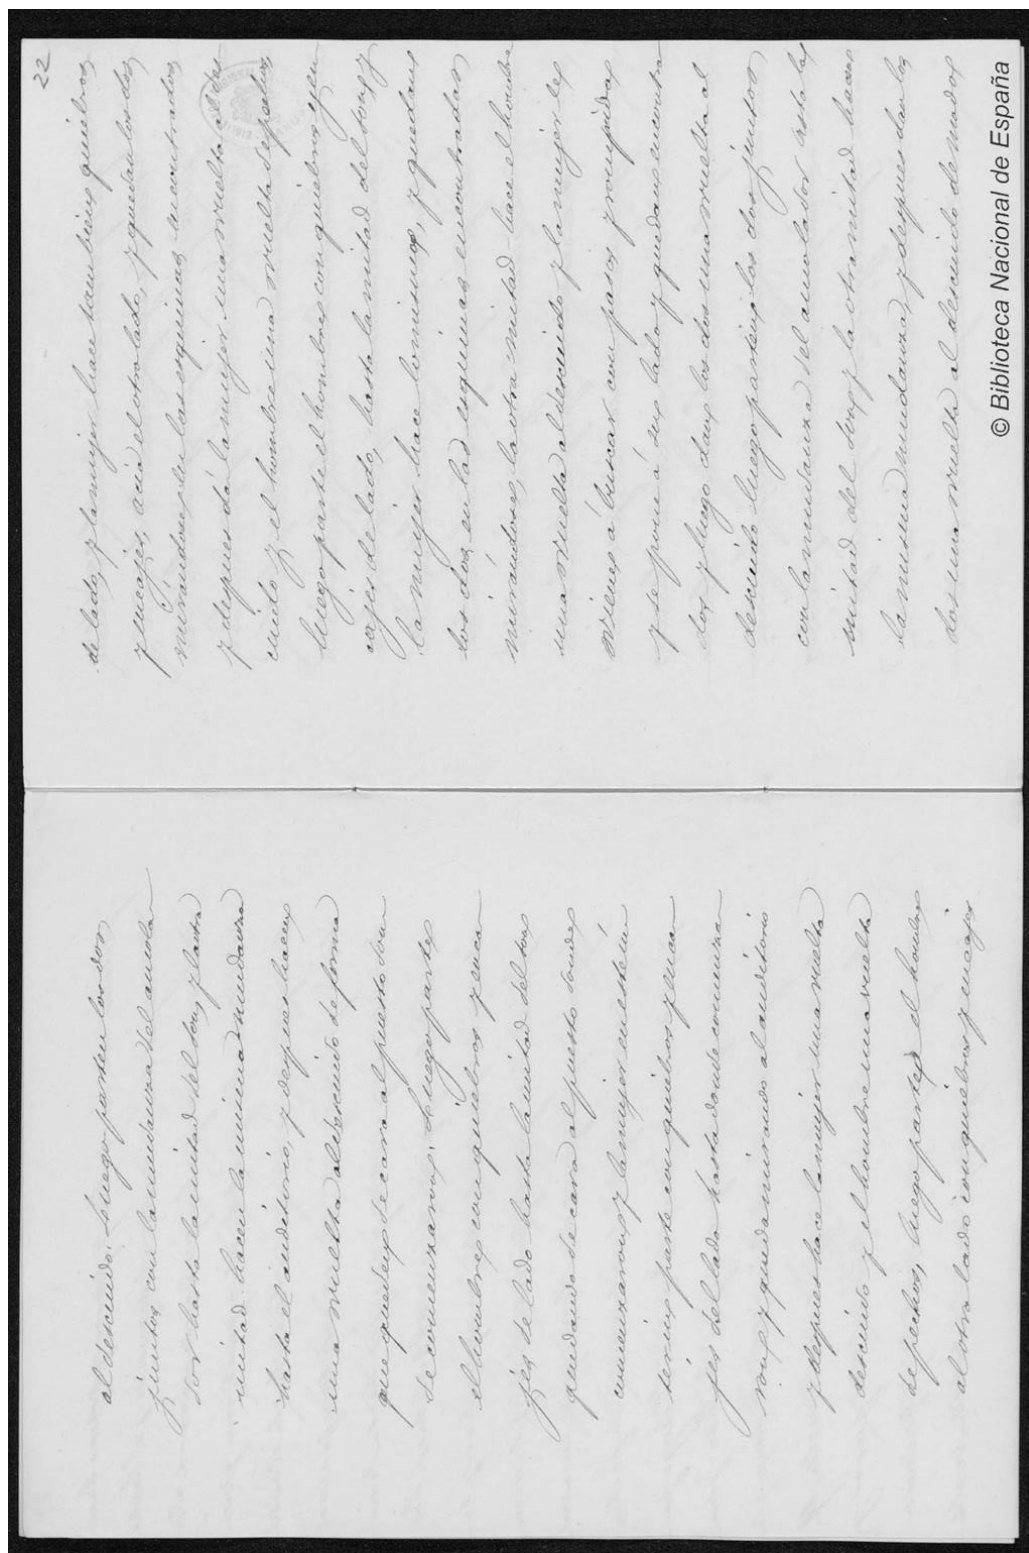 al descuido. Luego parten los dos
juntos, con la mudanza del amola
dor hasta la mitad del son, y la otra
mitad hacen la misma mudanza
hasta el auditorio, y despues hacen
una vuelta al descuido de forma
que queden de cara al puesto don
de comenzaron. Luego parte
el hombre con quiebros y enca
jes de lado hasta la mitad del son
quedando de cara al puesto donde
comenzaron y la mujer en este in
terin parte con quiebros y enca
jes del lado hasta donde comenza
ron y queda mirando al auditorio
y despues hace la mujer una vuelta
descuido y el hombre una vuelta
de pechos, luego parte el hombre
al otro lado con quiebros y encajes
22
de lado, y la mujer hace tambien quiebros
y encajes, acia el otro lado, y quedan los dos
mirandose en las esquinas, encontrados,
y despues dá la mujer una vuelta des
cuido y el hombre una vuelta de pechos,
luego parte el hombre con quiebros y en
cajes de lado, hasta la mitad del son, y
la mujer hace lo mismo, y quedan
los dos, en las esquinas encontradas,
mirandose, la otra mitad hace el hombre
una vuelta al descuido y la mujer le
viene á buscar con pasos rompidos
y se pone á su lado y quedan encontra
dos y luego dan los dos una vuelta al
descuido luego parten los dos juntos,
con la mudanza del amolador asta la
mitad del son y la otra mitad hacen
la misma mudanza, y despues dan los
dos una vuelta al descuido de modo
© Biblioteca Nacional de España